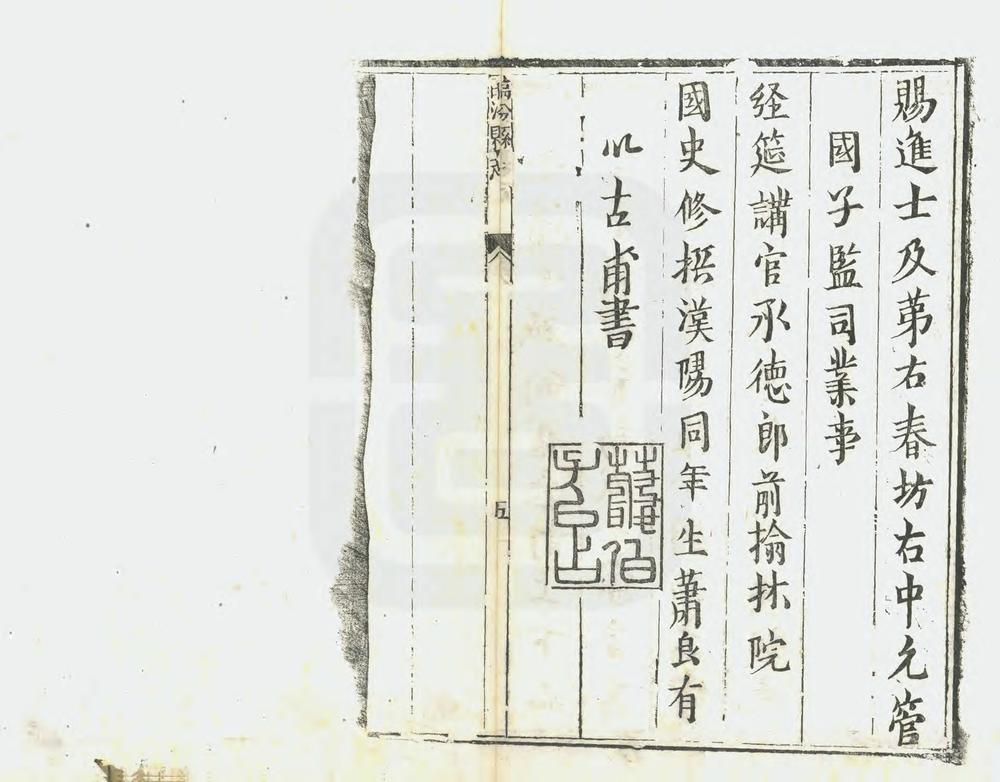 賜進士及苐右春坊右中允管
國子監司業事
経筵講官承徳郎前翰林院
國史修撰漢陽同年生蕭良有
以古甫書
臨汾縣志
五